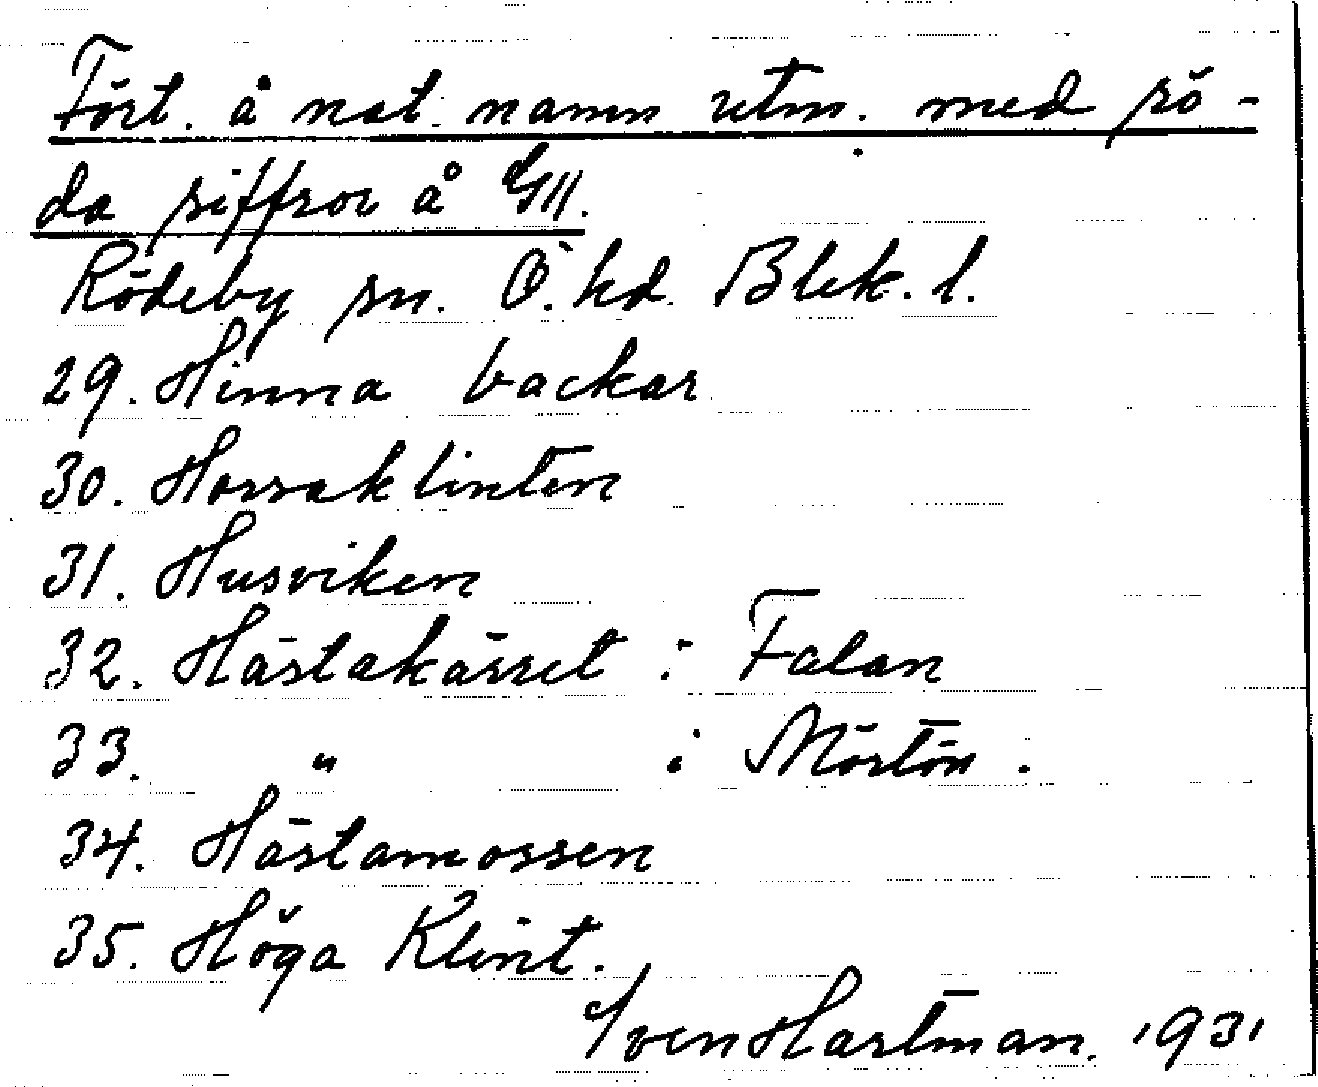 Fört. å nat. namn utm. med rö-
da siffror å GII.
Rödeby sn. Ö. hd. Blek. l.
29. Hinna backar
30. Horsaklinten
31. Husviken
32. Hästakärret i Falan
33. " i Mörtön.
34. Hästamossen
35. Höga Klint.
Sven Hartman. 1931